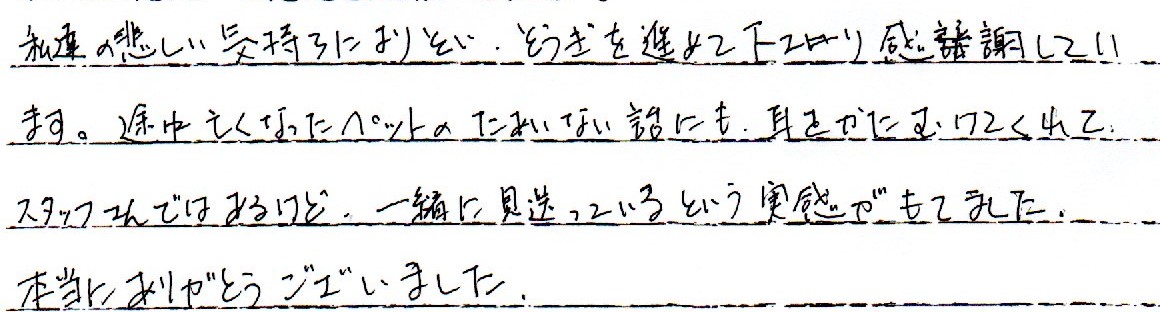 私達の悲しい気持ちによりそい、そうぎを進めて下さり感謝してい
ます。途中亡くなったペットのたわいない話にも、耳をかたむけてくれて、
スタッフさんではあるけど、一緒に見送っているという実感がもてました。
本当にありがとうございました。